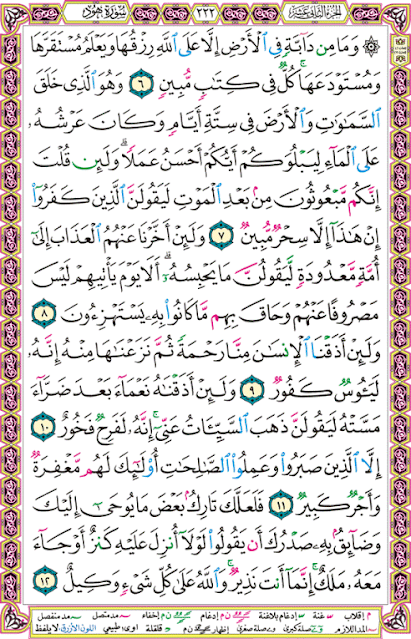 الجزء الثاني عشر ٢٢٢ سورة هود
۞ وَمَا مِن دَآبَّةٍ فِي ٱلْأَرْضِ إِلَّا عَلَى ٱللَّهِ رِزْقُهَا وَيَعْلَمُ مُسْتَقَرَّهَا
وَمُسْتَوْدَعَهَا ۚ كُلٌّ فِي كِتَٰبٍ مُّبِينٍ ٦ وَهُوَ ٱلَّذِي خَلَقَ
ٱلسَّمَٰوَٰتِ وَٱلْأَرْضَ فِي سِتَّةِ أَيَّامٍ وَكَانَ عَرْشُهُۥ
عَلَى ٱلْمَآءِ لِيَبْلُوَكُمْ أَيُّكُمْ أَحْسَنُ عَمَلًا ۗ وَلَئِن قُلْتَ
إِنَّكُم مَّبْعُوثُونَ مِنۢ بَعْدِ ٱلْمَوْتِ لَيَقُولَنَّ ٱلَّذِينَ كَفَرُوٓا۟
إِنْ هَٰذَآ إِلَّا سِحْرٌ مُّبِينٌ ٧ وَلَئِنْ أَخَّرْنَا عَنْهُمُ ٱلْعَذَابَ إِلَىٰٓ
أُمَّةٍ مَّعْدُودَةٍ لَّيَقُولُنَّ مَا يَحْبِسُهُۥٓ ۗ أَلَا يَوْمَ يَأْتِيهِمْ لَيْسَ
مَصْرُوفًا عَنْهُمْ وَحَاقَ بِهِم مَّا كَانُوا۟ بِهِۦ يَسْتَهْزِءُونَ ٨
وَلَئِنْ أَذَقْنَا ٱلْإِنسَٰنَ مِنَّا رَحْمَةً ثُمَّ نَزَعْنَٰهَا مِنْهُ إِنَّهُۥ
لَيَـُٔوسٌ كَفُورٌ ٩ وَلَئِنْ أَذَقْنَٰهُ نَعْمَآءَ بَعْدَ ضَرَّآءَ
مَسَّتْهُ لَيَقُولَنَّ ذَهَبَ ٱلسَّيِّـَٔاتُ عَنِّيٓ ۚ إِنَّهُۥ لَفَرِحٌ فَخُورٌ ١٠
إِلَّا ٱلَّذِينَ صَبَرُوا۟ وَعَمِلُوا۟ ٱلصَّٰلِحَٰتِ أُو۟لَٰٓئِكَ لَهُم مَّغْفِرَةٌ
وَأَجْرٌ كَبِيرٌ ١١ فَلَعَلَّكَ تَارِكٌۢ بَعْضَ مَا يُوحَىٰٓ إِلَيْكَ
وَضَآئِقٌۢ بِهِۦ صَدْرُكَ أَن يَقُولُوا۟ لَوْلَآ أُنزِلَ عَلَيْهِ كَنزٌ أَوْ جَآءَ
مَعَهُۥ مَلَكٌ ۚ إِنَّمَآ أَنتَ نَذِيرٌ ۚ وَٱللَّهُ عَلَىٰ كُلِّ شَيْءٍ وَكِيلٌ ١٢